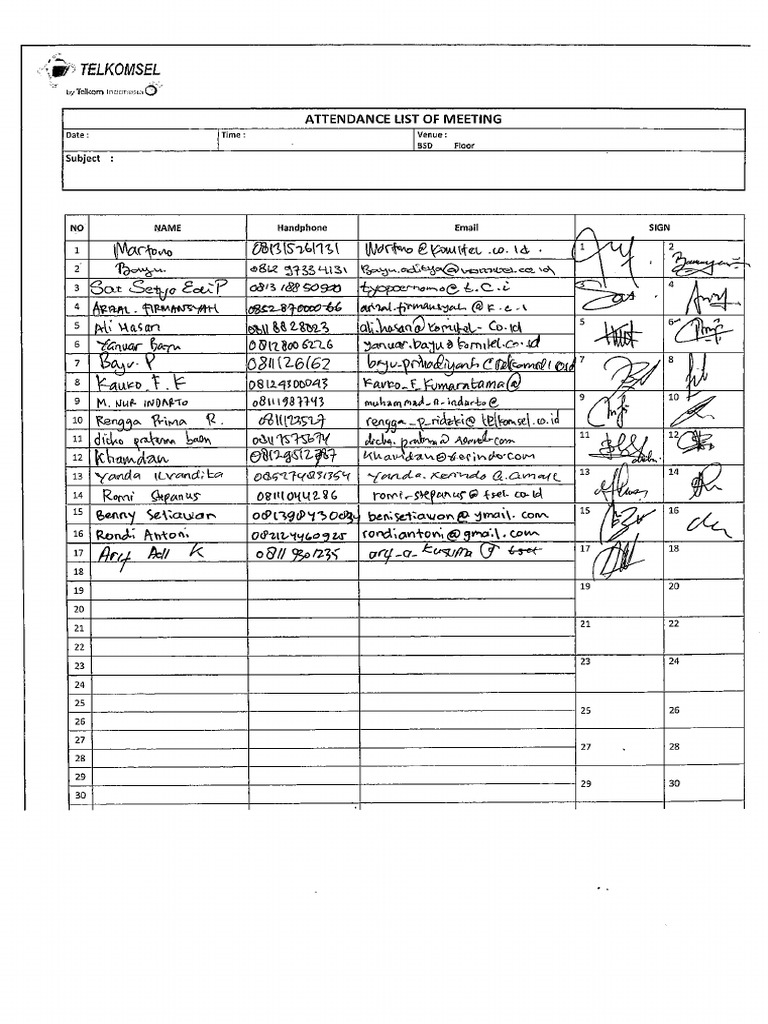 TELKOMSEL
by Telkom Indonesia
ATTENDANCE LIST OF MEETING
Date : Time : Venue :
BSD Floor
Subject :
NO NAME Handphone Email SIGN
1 Martono 081315261731 Martono@komitel.co.id. 1 2
2 Bayu. 0812 97334131 Bayu.aditya@komitel.co.id
3 Sat Setyo Edi P 0813 18850900 tyopoernomo@t.c.i 3 4
4 ARIZAL. FIRMANSYAH 0852 870000 66 arizal.firmansyah@k.c.i
5 Ali Hasan 08118828023 ali.hasan@komitel-co.id 5 6
6 Yanuar Bayu 08128006226 yanuar.bayu@komitel.co.id
7 Bayu.P 0811126162 7 8
8 Kauko F. K 08124300043 Kauko_F_Kumaratama@
9 M. NUR INDARTO 08111987743 muhammad_n-indarto@ 9 10
10 Rengga Prima R. 0811123527 rengga_p_ridzki@telkomsel.co.id
11 dicho pratama 08117575674 11 12
12 Khamdan 08129512787 khamdan@xerindo.com
13 Yanda 085274851354 Yanda. 13 14
14 Romi Stepanus 08111044286 romi_stepanus@tsel.co.id
15 Benny Setiawan benisetiawan@ymail.com 15 16
16 Rondi Antoni 082124460925 rondiantoni@gmail.com
17 Arif Adi K 0811 9301235 17 18
18
19 19 20
20
21 21 22
22
23 23 24
24
25 25 26
26
27 27 28
28
29 29 30
30